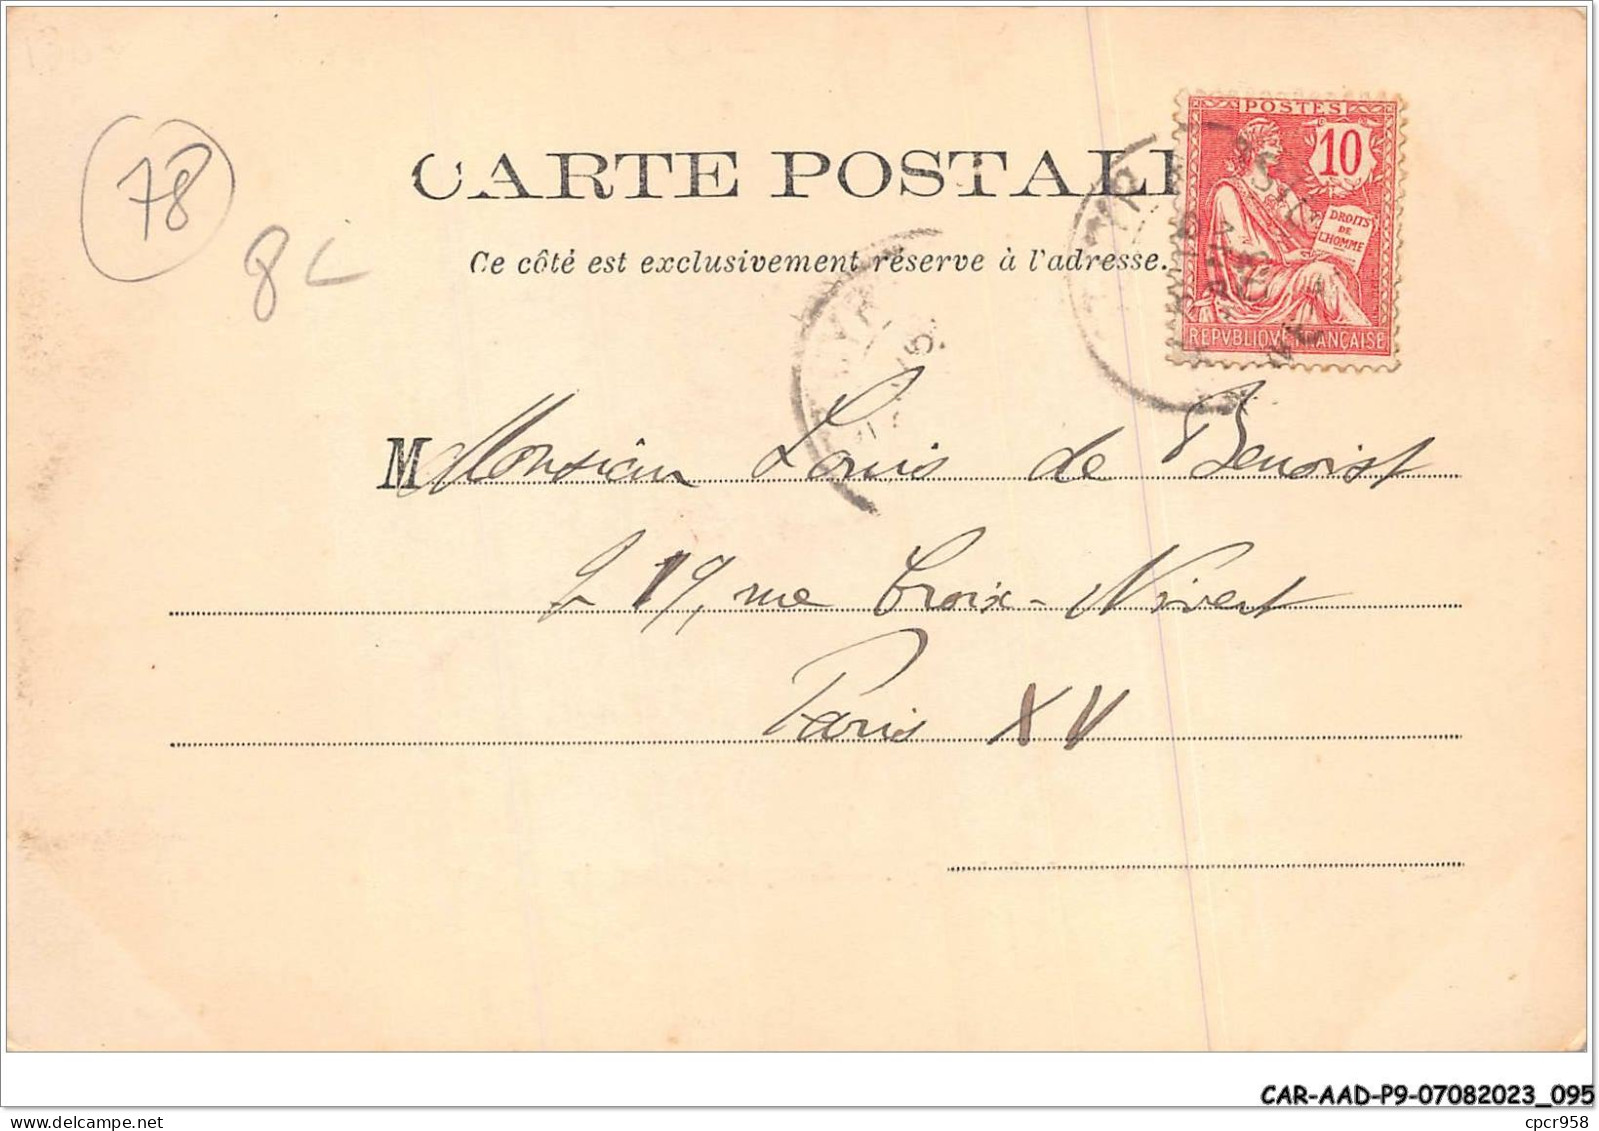 78
8
CARTE POSTAL
Ce côté est exclusivement réservé à l'adresse.
POSTES
10
DROITS
DE
L'HOMME
REPVBLIQVE FRANÇAISE
M Monsieur Louis de Benoist
219, rue Croix-Nivert
Paris XV
CAR-AAD-P9-07082023_095
cpcr958